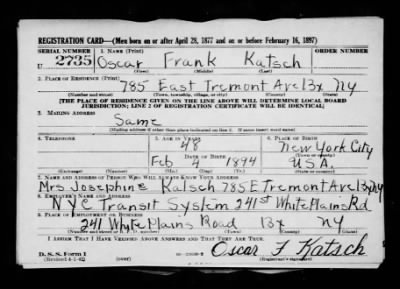 REGISTRATION CARD—(Men born on or after April 28, 1877 and on or before February 16, 1897)
SERIAL NUMBER 1. NAME (Print) ORDER NUMBER
U 2735 Oscar Frank Katsch
(First) (Middle) (Last)
2. PLACE OF RESIDENCE (Print)
785 East Tremont Ave Bx NY
(Number and street) (Town, township, village, or city) (County) (State)
[THE PLACE OF RESIDENCE GIVEN ON THE LINE ABOVE WILL DETERMINE LOCAL BOARD
JURISDICTION; LINE 2 OF REGISTRATION CERTIFICATE WILL BE IDENTICAL]
3. MAILING ADDRESS
Same
[Mailing address if other than place indicated on line 2. If same insert word same]
4. TELEPHONE 5. AGE IN YEARS 6. PLACE OF BIRTH
48 New York City
DATE OF BIRTH (Town or county)
Feb 4 1894 U.S.A.
(Exchange) (Number) (Mo.) (Day) (Yr.) (State or country)
7. NAME AND ADDRESS OF PERSON WHO WILL ALWAYS KNOW YOUR ADDRESS
Mrs Josephine Katsch 785 E Tremont Ave Bx NY
8. EMPLOYER'S NAME AND ADDRESS
NYC Transit System 241st White Plains Rd
9. PLACE OF EMPLOYMENT OR BUSINESS
241 White Plains Road Bx NY
(Number and street or R. F. D. number) (Town) (County) (State)
I AFFIRM THAT I HAVE VERIFIED ABOVE ANSWERS AND THAT THEY ARE TRUE.
D. S. S. Form 1 Oscar F Katsch
(Revised 4-1-42) (Registrant's signature)